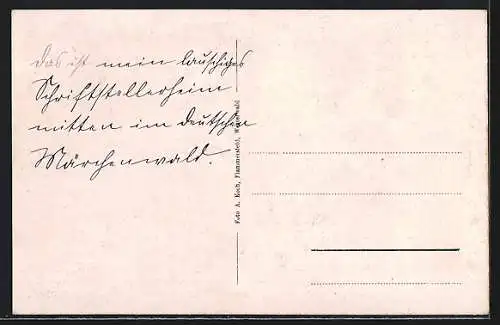 das ist mein lauschiges
Schriftstellerheim
mitten im deutschen
Märchenwald.
Foto A. Koch, Flammersfeld, Westerwald